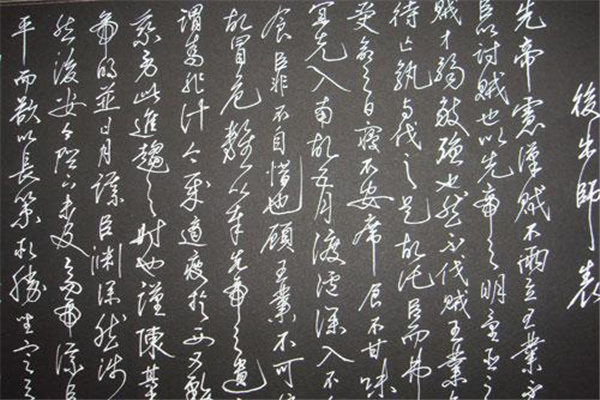 後出師表
先帝慮漢賊不兩立王業不
臣以討賊也以先帝之明量臣之
賊才弱敵強也然不伐賊王業
待亡孰與伐之是故託臣而弗
受命之日寢不安席食不甘味
宜先入南故五月渡瀘深入不
食臣非不自惜也顧王業不可
故冒危難以奉先帝之遺
謂為非計今賊適疲於西又務
此進趨之時也謹陳其
帝明並日月謀臣淵深然涉
然後安今陛下未及高帝謀臣
平而欲以長策取勝坐定